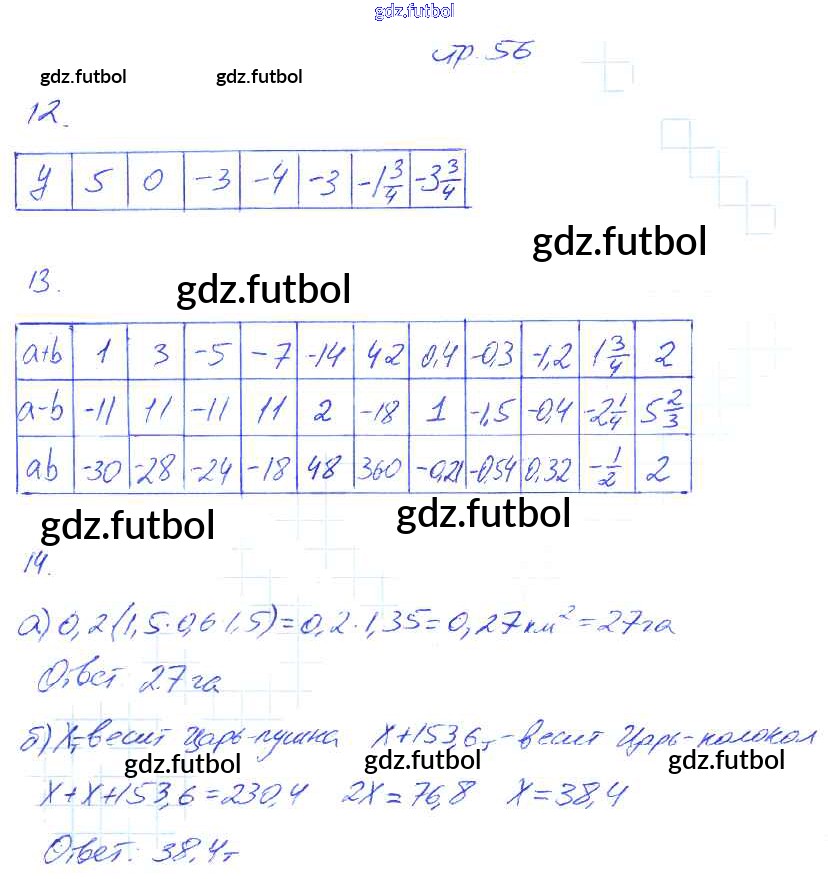 gdz.futbol
стр. 56
gdz.futbol gdz.futbol
12.
y 5 0 -3 -4 -3 -1 3/4 -3 3/4
gdz.futbol
13. gdz.futbol
a+b 1 3 -5 -7 -14 42 0,4 -0,3 -1,2 1 3/4 2
a-b -11 11 -11 11 2 -18 1 -1,5 -0,4 -2 1/4 5 2/3
ab -30 -28 -24 -18 48 360 -0,21 -0,54 0,32 -1/2 2
gdz.futbol gdz.futbol
14.
а) 0,2(1,5·0,6·1,5)=0,2·1,35=0,27км²=27га
Ответ: 27га
б) Xт-весит Царь-пушка X+153,6т-весит Царь-колокол
gdz.futbol gdz.futbol gdz.futbol
X+X+153,6=230,4 2X=76,8 X=38,4
Ответ: 38,4т